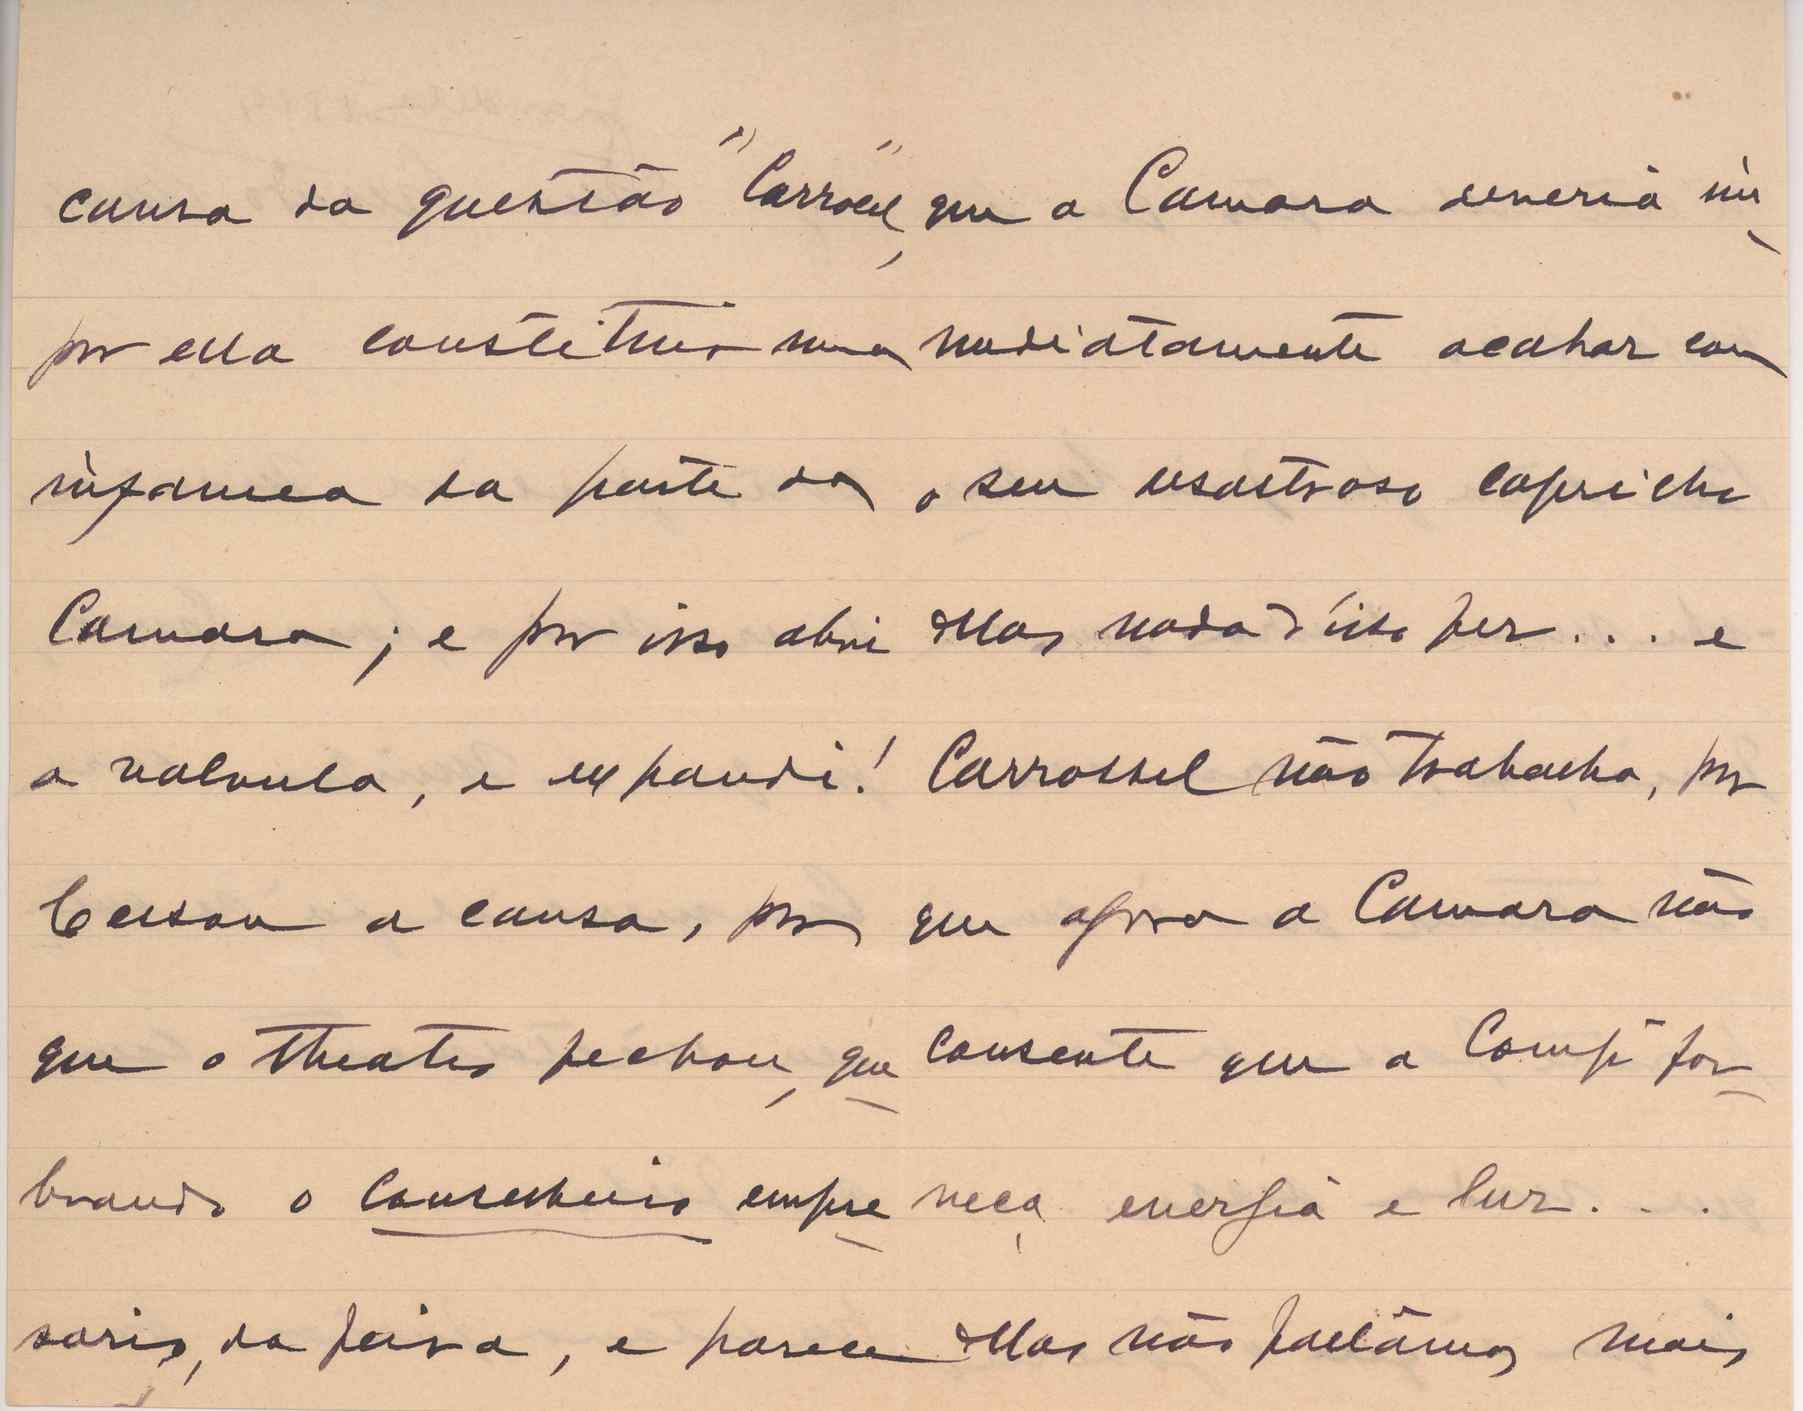 causa da questão "Carrocel",
por ella constituir uma
infamea da parte da
Camara; e por isso abri
a valvula, e expandi!
Cessou a causa, por
que o theatro fechou, que
brando o Conselheiro empre
sario, da feira, e parece
que a Camara deveria im
mediatamente acabar com
o seu desastroso capricho
Mas nada d'isto fez... e
Carrossel não trabalha, por
que agora a Camara não
consente que a Compª for
neça energia e luz...
Mas não falêmos mais